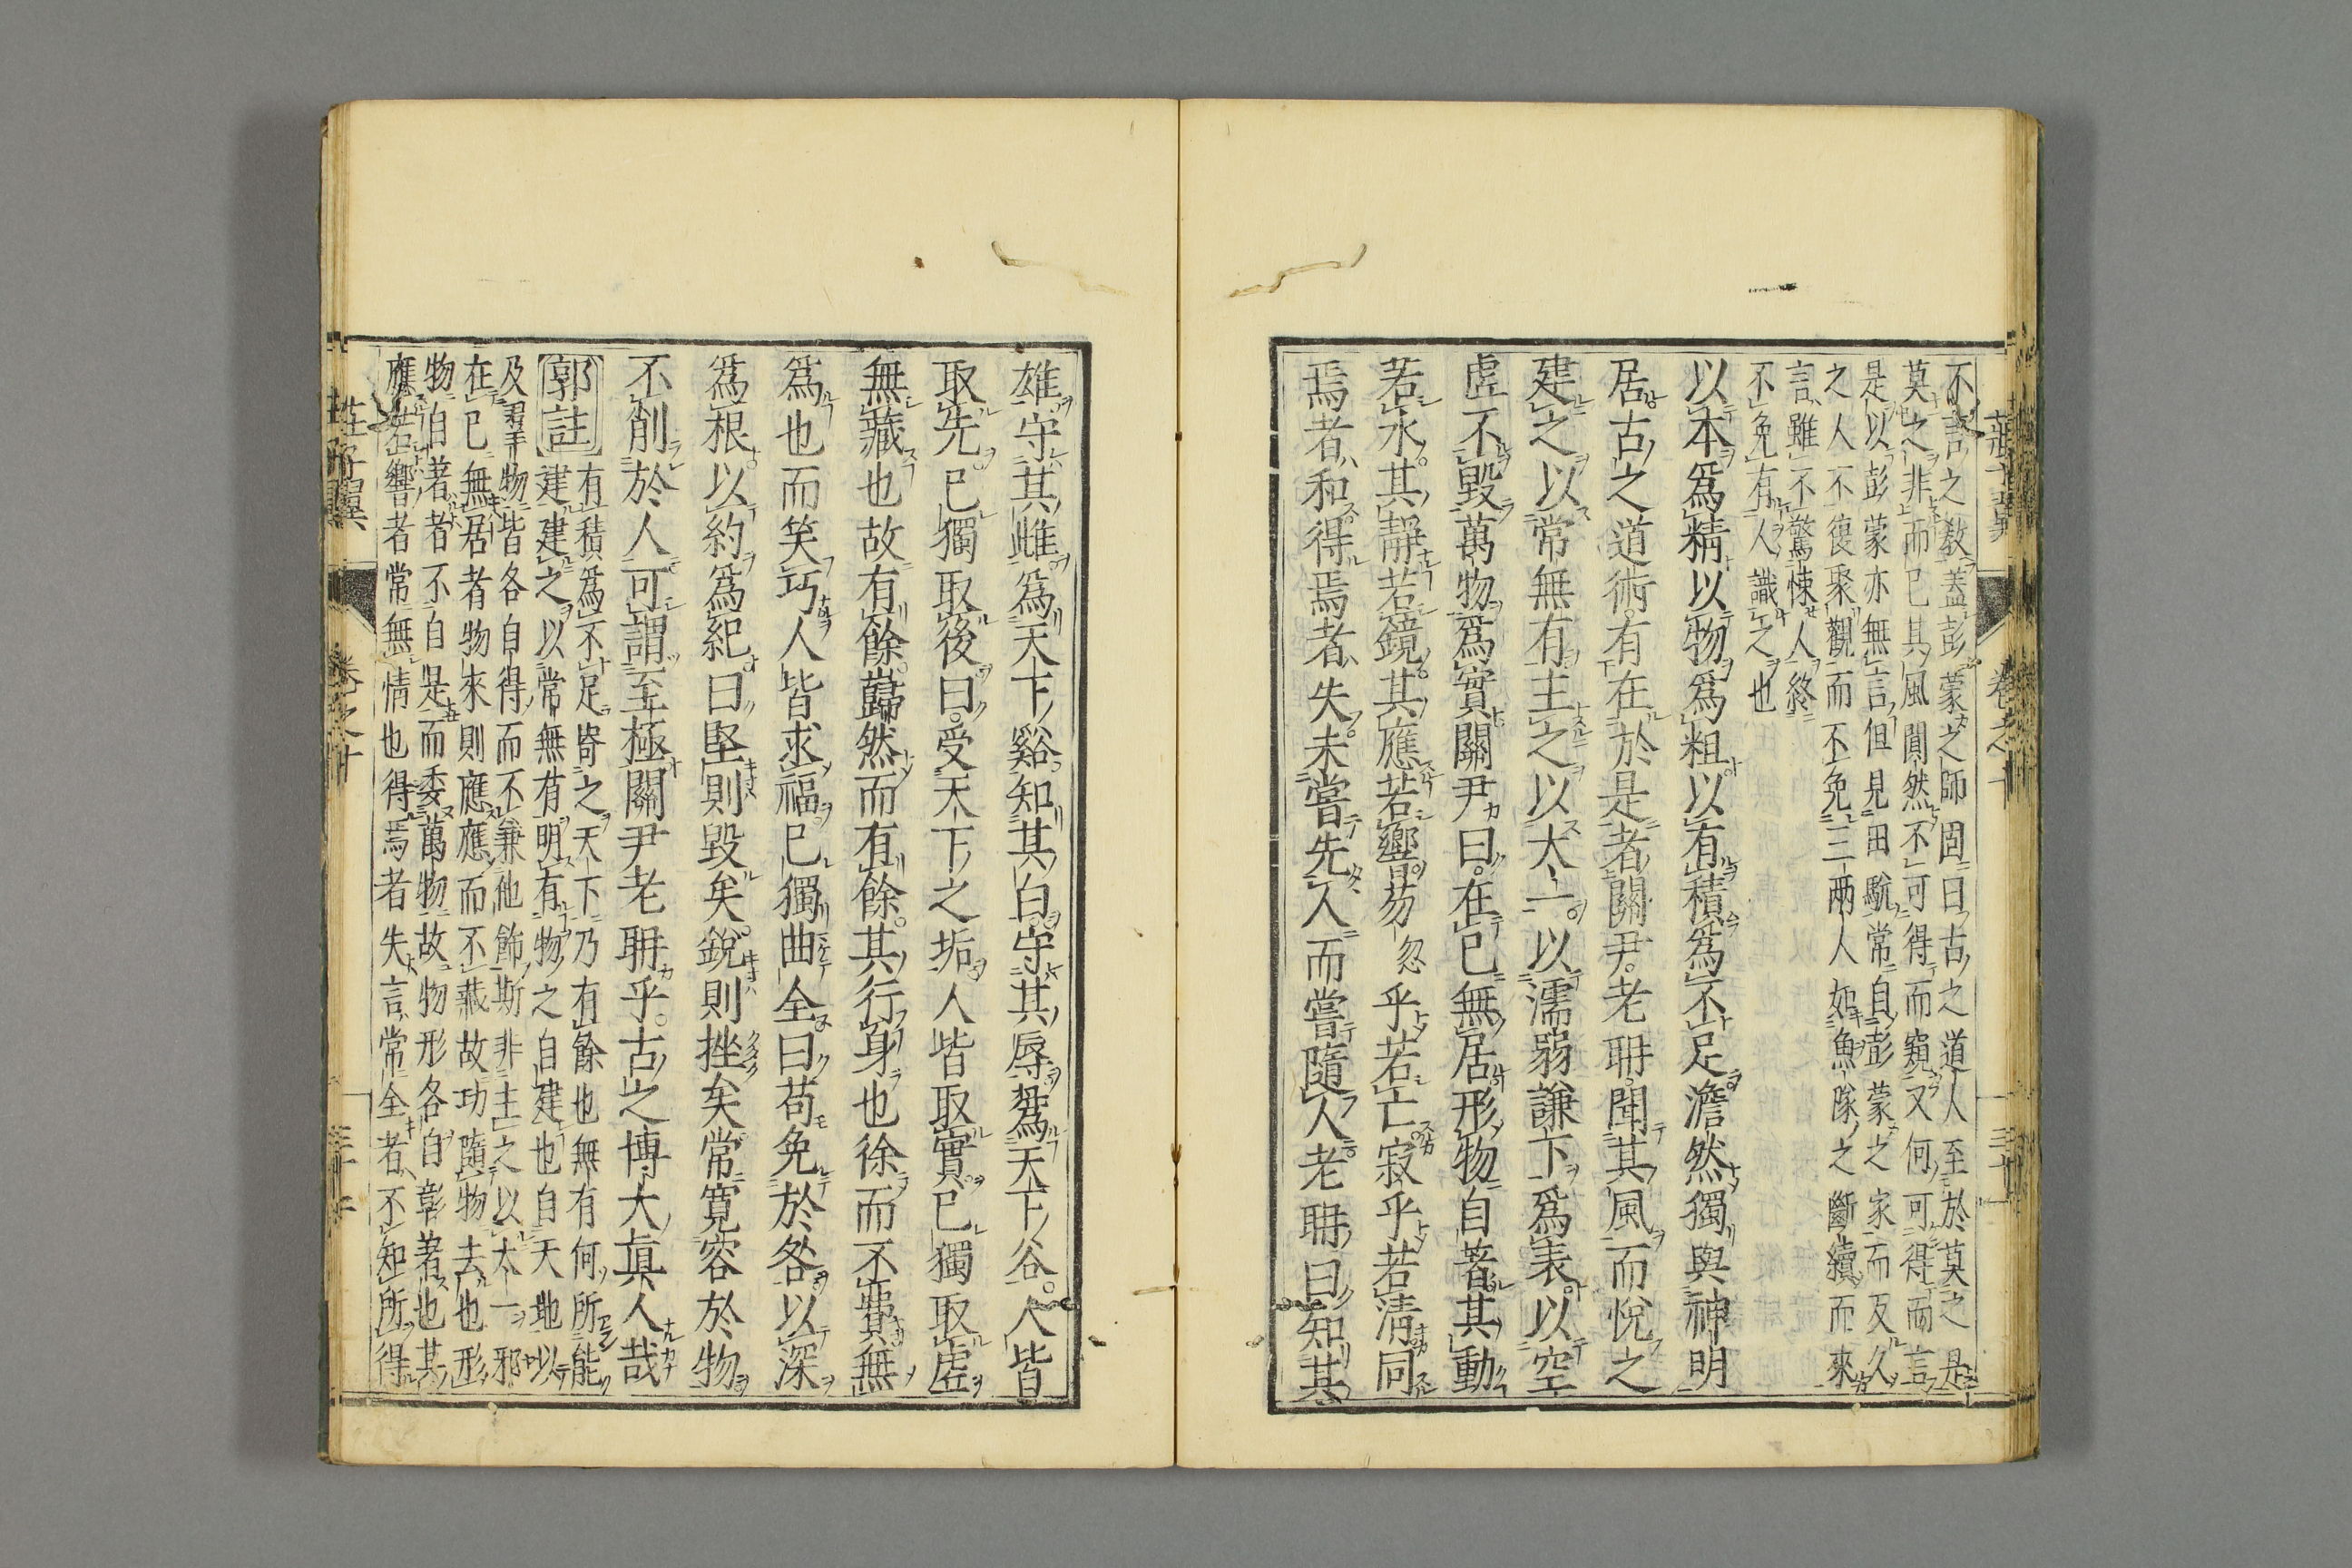 不言之教蓋彭蒙之師固曰古之道人至於莫之是
莫之非而已其風閴然不可得而窺又何可得而言
是以彭蒙亦無言但見田駢常自彭蒙之家而反久
之人不復聚觀而不免三两人如魚隊之斷續而來
言雖不驚悚人終
不免有人識之也
以本爲精以物爲粗以有積爲不足澹然獨與神明
居古之道術有在於是者關尹老聃聞其風而悅之
建之以常無有主之以太一以濡弱謙下爲表以空
虛不毀萬物爲實關尹曰在已無居形物自著其動
若水其靜若鏡其應若響芴忽乎若亡寂乎若淸同
焉者和得焉者失未嘗先人而嘗隨人老聃曰知其
雄守其雌爲天下谿知其白守其辱爲天下谷人皆
取先已獨取後曰受天下之垢人皆取實已獨取虛
無藏也故有餘巋然而有餘其行身也徐而不費無
爲也而笑巧人皆求福已獨曲全曰苟免於咎以深
爲根以約爲紀曰堅則毀矣銳則挫矣常寬容於物
不削於人可謂至極關尹老聃乎古之博大眞人哉
郭註
有積爲不足寄之天下乃有餘也無有何所能
建建之以常無有明有物之自建也自天地以
及羣物皆各自得而不兼他飾斯非主之以太一邪
在已無居者物來則應應而不藏故功隨物去也形
物自著者不自是而委萬物故物形各自彰著也其
應若響者常無情也得焉者失言常全者不知所得
莊子翼
卷之十
三十一